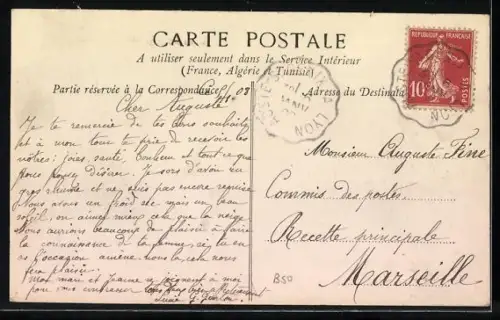 CARTE POSTALE
A utiliser seulement dans le Service Intérieur
(France, Algérie & Tunisie)
Partie réservée à la Correspondance
Adresse du Destinataire
RÉPUBLIQUE FRANÇAISE
10
POSTES
LYON
08
Cher Auguste
Je te remercie de tes bons souhaits
et à mon tour te prie de recevoir les
nôtres: joies, santé, bonheur et tout ce que
vous pouvez désirer. Je sors d'avoir un
gros rhume et ne suis pas encore remise
Nous avons un froid sec mais un beau
soleil, on aime mieux cela que la neige.
Nous aurions beaucoup de plaisir à faire
la connaissance de ta femme, si tu en
as l'occasion amène-nous la cela nous
fera plaisir.
Mon mari et Jeanne se joignent à moi
pour vous embrasser tous deux bien affectueusement
Monsieur Auguste Fine
Commis des postes
Recette principale
Marseille
B50